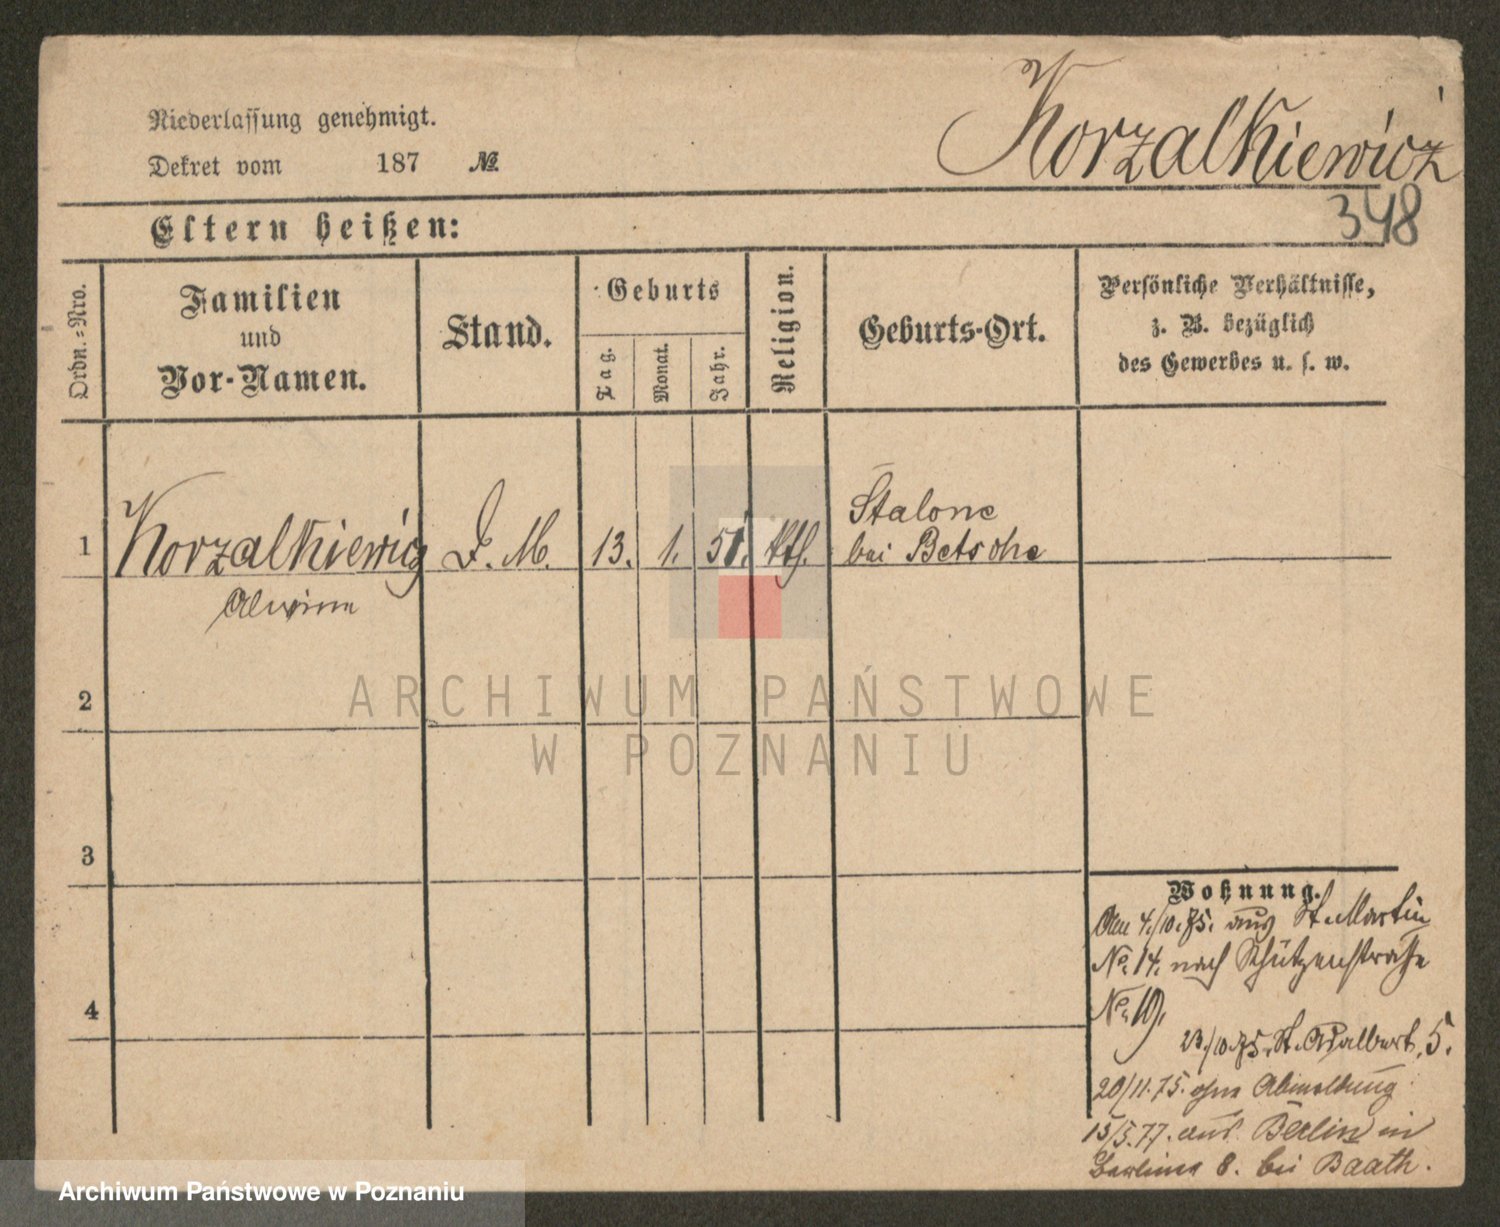 Korzalkiewicz
Niederlassung genehmigt.
Dekret vom 187 №
348
Eltern heißen:
Ordn.=Nro.
Familien
und
Vor-Namen.
Stand.
Geburts
Tag.
Monat.
Jahr.
Religion.
Geburts-Ort.
Persönliche Verhältnisse,
z. B. bezüglich
des Gewerbes u. s. w.
1 Korzalkiewicz D. M. 13. 1. 51. kth. Stalone
bei Betsche
Alwine
2
3
4
Wohnung.
Am 4./10.75. aus St. Martin
No. 14. nach Schützenstraße
No. 19.
23./10.75. St. Adalbert 5.
20/11.75. ohne Abmeldung
15/5.77. aus Berlin in
8. bei Baath.
ARCHIWUM PAŃSTWOWE
W POZNANIU
Archiwum Państwowe w Poznaniu